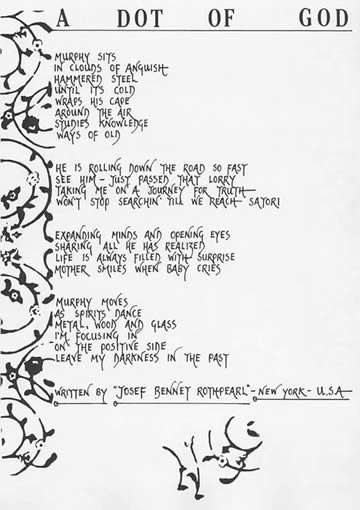 A DOT OF GOD
MURPHY SITS
IN CLOUDS OF ANGUISH
HAMMERED STEEL
UNTIL IT'S COLD
WRAPS HIS CAPE
AROUND THE AIR
STUDIES KNOWLEDGE
WAYS OF OLD
HE IS ROLLING DOWN THE ROAD SO FAST
SEE HIM - JUST PASSED THAT LORRY
TAKING ME ON A JOURNEY FOR TRUTH
WON'T STOP SEARCHIN' TILL WE REACH SATORI
EXPANDING MINDS AND OPENING EYES
SHARING ALL HE HAS REALIZED
LIFE IS ALWAYS FILLED WITH SURPRISE
MOTHER SMILES WHEN BABY CRIES
MURPHY MOVES
AS SPIRITS DANCE
METAL, WOOD AND GLASS
I'M FOCUSING IN
ON THE POSITIVE SIDE
LEAVE MY DARKNESS IN THE PAST
WRITTEN BY "JOSEF BENNEY ROTHPEARL" - NEW YORK - U.S.A.